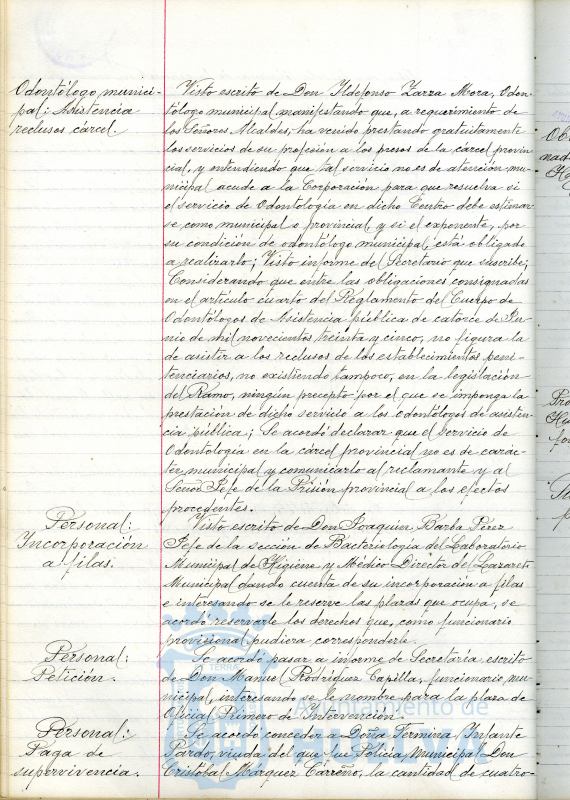 Odontólogo munici-
pal: Asistencia
reclusos cárcel.
Visto escrito de Don Ildefonso Zarza Mora, Odon-
tólogo municipal, manifestando que, a requerimiento de
los Señores Alcaldes, ha venido prestando gratuitamente
los servicios de su profesión a los presos de la cárcel provin-
cial, y entendiendo que tal servicio no es de atención mu-
nicipal acude a la Corporación para que resuelva si
el servicio de Odontología en dicho Centro debe estimar-
se como municipal o provincial, y si el exponente, por
su condición de odontólogo municipal, está obligado
a realizarlo; Visto informe del Secretario que suscribe;
Considerando que entre las obligaciones consignadas
en el artículo cuarto del Reglamento del Cuerpo de
Odontólogos de Asistencia pública de catorce de Ju-
nio de mil novecientos treinta y cinco, no figura la
de asistir a los reclusos de los establecimientos peni-
tenciarios, no existiendo tampoco, en la legislación
del Ramo, ningún precepto por el que se imponga la
prestación de dicho servicio a los odontólogos de asisten-
cia pública; Se acordó declarar que el servicio de
Odontología en la cárcel provincial no es de carác-
ter municipal y comunicarlo al reclamante y al
Señor Jefe de la Prisión provincial a los efectos
procedentes.
Personal:
Incorporación
a filas.
Visto escrito de Don Joaquín Barba Pérez
Jefe de la sección de Bacteriología del Laboratorio
Municipal de Higiene y Medico Director del Lazareto
Municipal dando cuenta de su incorporación a filas
e interesando se le reserve las plazas que ocupa, se
acordó reservarle los derechos que, como funcionario
provisional pudiera corresponderle.
Personal:
Petición.
Se acordó pasar a informe de Secretaría escrito
de Don Manuel Rodríguez Capilla, funcionario mu-
nicipal, interesando se le nombre para la plaza de
Oficial Primero de Intervención.
Personal:
Paga de
supervivencia.
Se acordó conceder a Doña Fermina Infante
Pardo, viuda del que fue Policía Municipal Don
Cristóbal Márquez Carreño, la cantidad de cuatro-
Ayuntamiento de